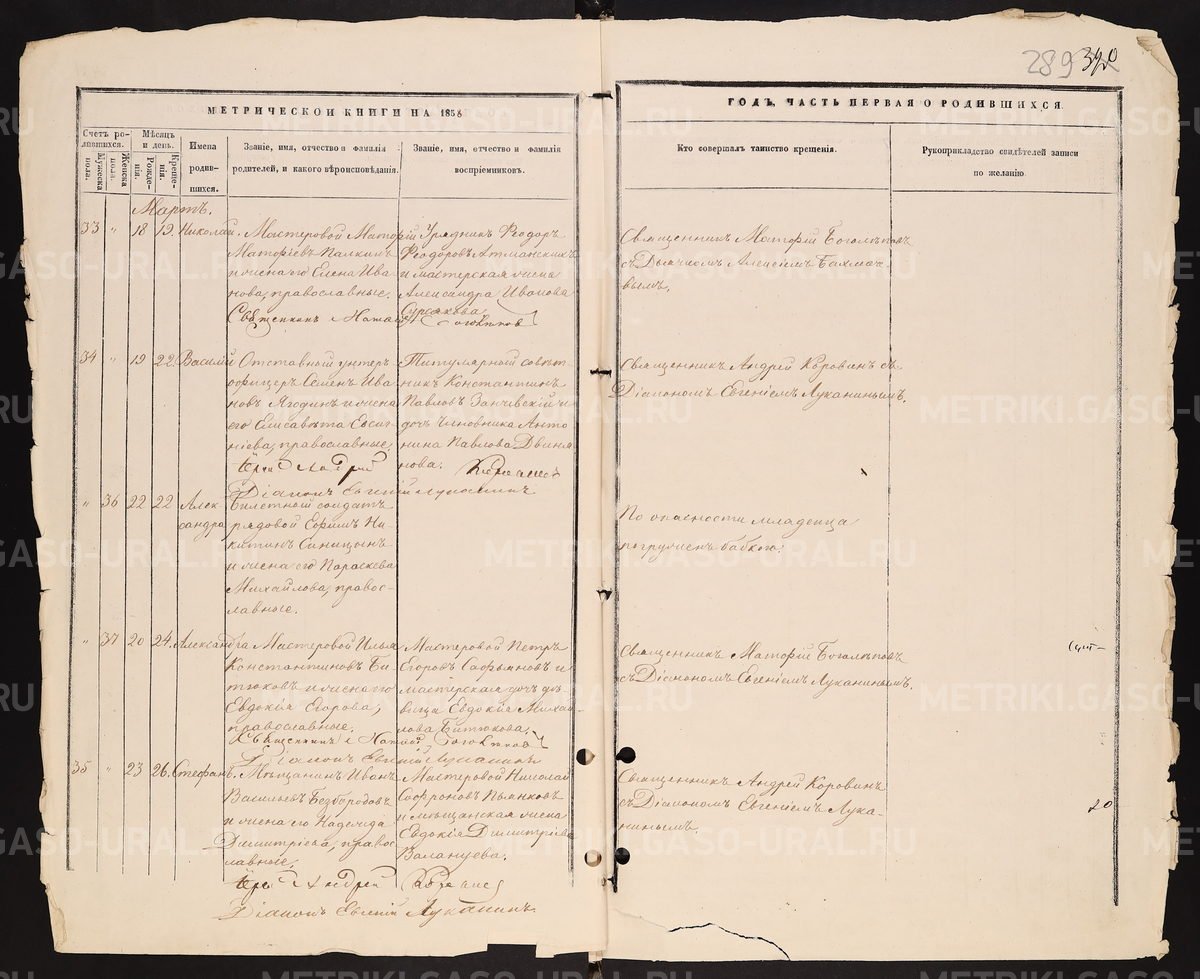 289 320
МЕТРИЧЕСКОЙ КНИГИ НА 1858
ГОДЪ, ЧАСТЬ ПЕРВАЯ О РОДИВШИХСЯ.
Счетъ ро-
дившихся.
Мужеска
пола.
Женска
пола.
Мѣсяцъ
и день.
Рожде-
нія.
Креще-
нія.
Имена
родив-
шихся.
Званіе, имя, отчество и фамилія
родителей, и какого вѣроисповѣданія.
Званіе, имя, отчество и фамилія
воспріемниковъ.
Кто совершалъ таинство крещенія.
Рукоприкладство свидѣтелей записи
по желанію.
Мартъ.
33 " 18 19 Николай.
Мастеровой Матѳій
Матѳіевъ Палкинъ
и жена его Елена Ива-
нова, православные.
Урядникъ Ѳеодоръ
Ѳеодоровъ Атманскихъ
и мастерская жена
Александра Иванова
Сурсякова
Священникъ Матѳій Боголѣповъ
съ Дьячкомъ Алексіемъ Бахмач-
вымъ.
Священникъ Матѳій Боголѣповъ
34 " 19 22 Василій
Отставный унтеръ
офицеръ Семенъ Ива-
новъ Ягодинъ и жена
его Елисавета Евсиг-
ніева, православные.
Титулярный совѣт-
никъ Константинъ
Павловъ Занчевскій и
дочь чиновника Анто-
нина Павлова Двиня-
нова.
Священникъ Андрей Коровинъ съ
Діакономъ Евгеніемъ Луканинымъ.
Іерей Андрей Коровинъ
Діаконъ Евгеній Луканинъ
" 36 22 22 Алек-
сандра
Билетный солдатъ
рядовой Ефимъ Ни-
китинъ Синицынъ
и жена его Параскева
Михайлова, право-
славные.
По опасности младенца
погруженъ бабкою.
" 37 20 24. Александра
Мастеровой Илья
Константиновъ Би-
тюковъ и жена его
Евдокія Егорова,
православные.
Мастеровой Петръ
Егоровъ Сафьяновъ и
мастерская дочь дѣ-
вица Евдокія Михай-
лова Битюкова.
Священникъ Матѳій Боголѣповъ
съ Діакономъ Евгеніемъ Луканинымъ.
Священникъ Матѳій Боголѣповъ
Діаконъ Евгеній Луканинъ
35 " 23 26. Стефанъ.
Мѣщанинъ Иванъ
Васильевъ Безбородовъ
и жена его Надежда
Димитріева, право-
славные.
Мастеровой Николай
Софроновъ Пьянковъ
и мѣщанская жена
Евдокія Димитріева
Валанцева.
Священникъ Андрей Коровинъ
съ Діакономъ Евгеніемъ Лука-
нинымъ.
20
Іерей Андрей Коровинъ
Діаконъ Евгеній Луканинъ.
METRIKI.GASO-URAL.RU